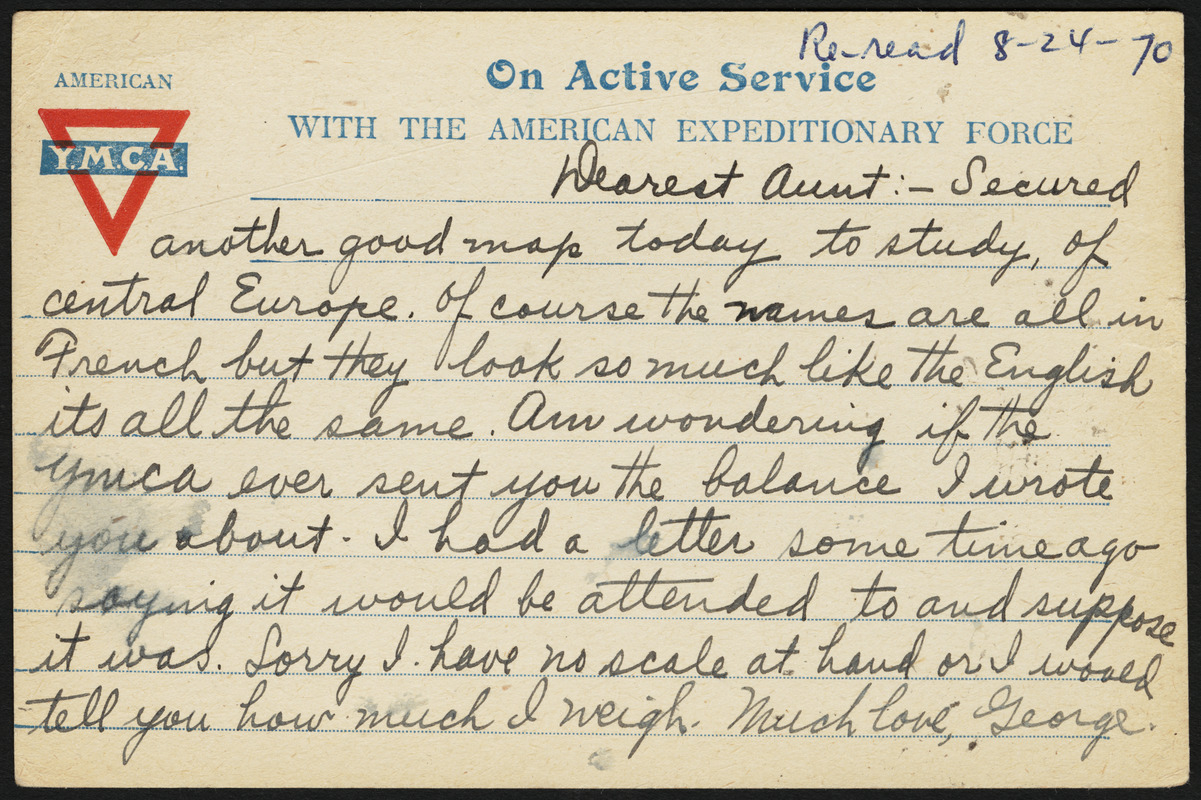 Re-read 8-24-70
AMERICAN
On Active Service
Y.M.C.A.
WITH THE AMERICAN EXPEDITIONARY FORCE
Dearest Aunt:- Secured
another good map today to study, of
central Europe. Of course the names are all in
French but they look so much like the English
its all the same. Am wondering if the
ymca ever sent you the balance I wrote
you about. I had a letter some time ago
saying it would be attended to and suppose
it was. Sorry I have no scale at hand or I would
tell you how much I weigh. Much love, George.